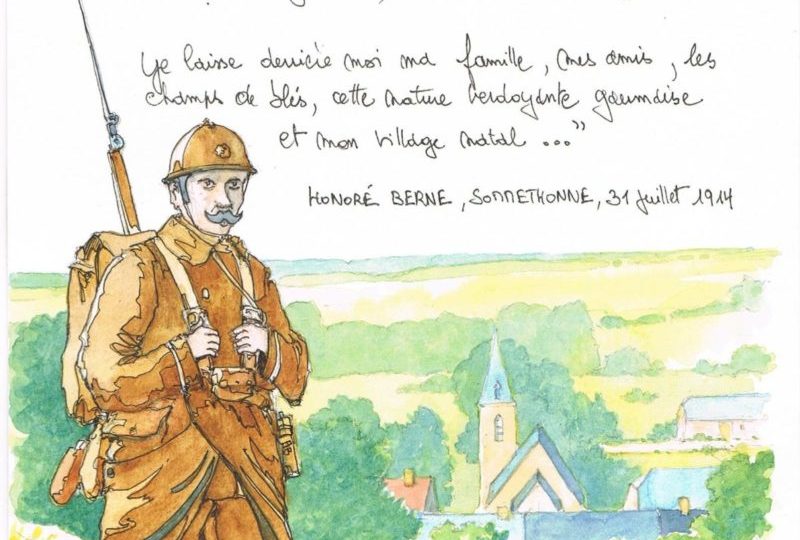 Je laisse derrière moi ma famille, mes amis, les
champs de blés, cette nature verdoyante gaumaise
et mon village natal ..."
HONORÉ BERNE, SOMMETHONNE, 31 juillet 1914